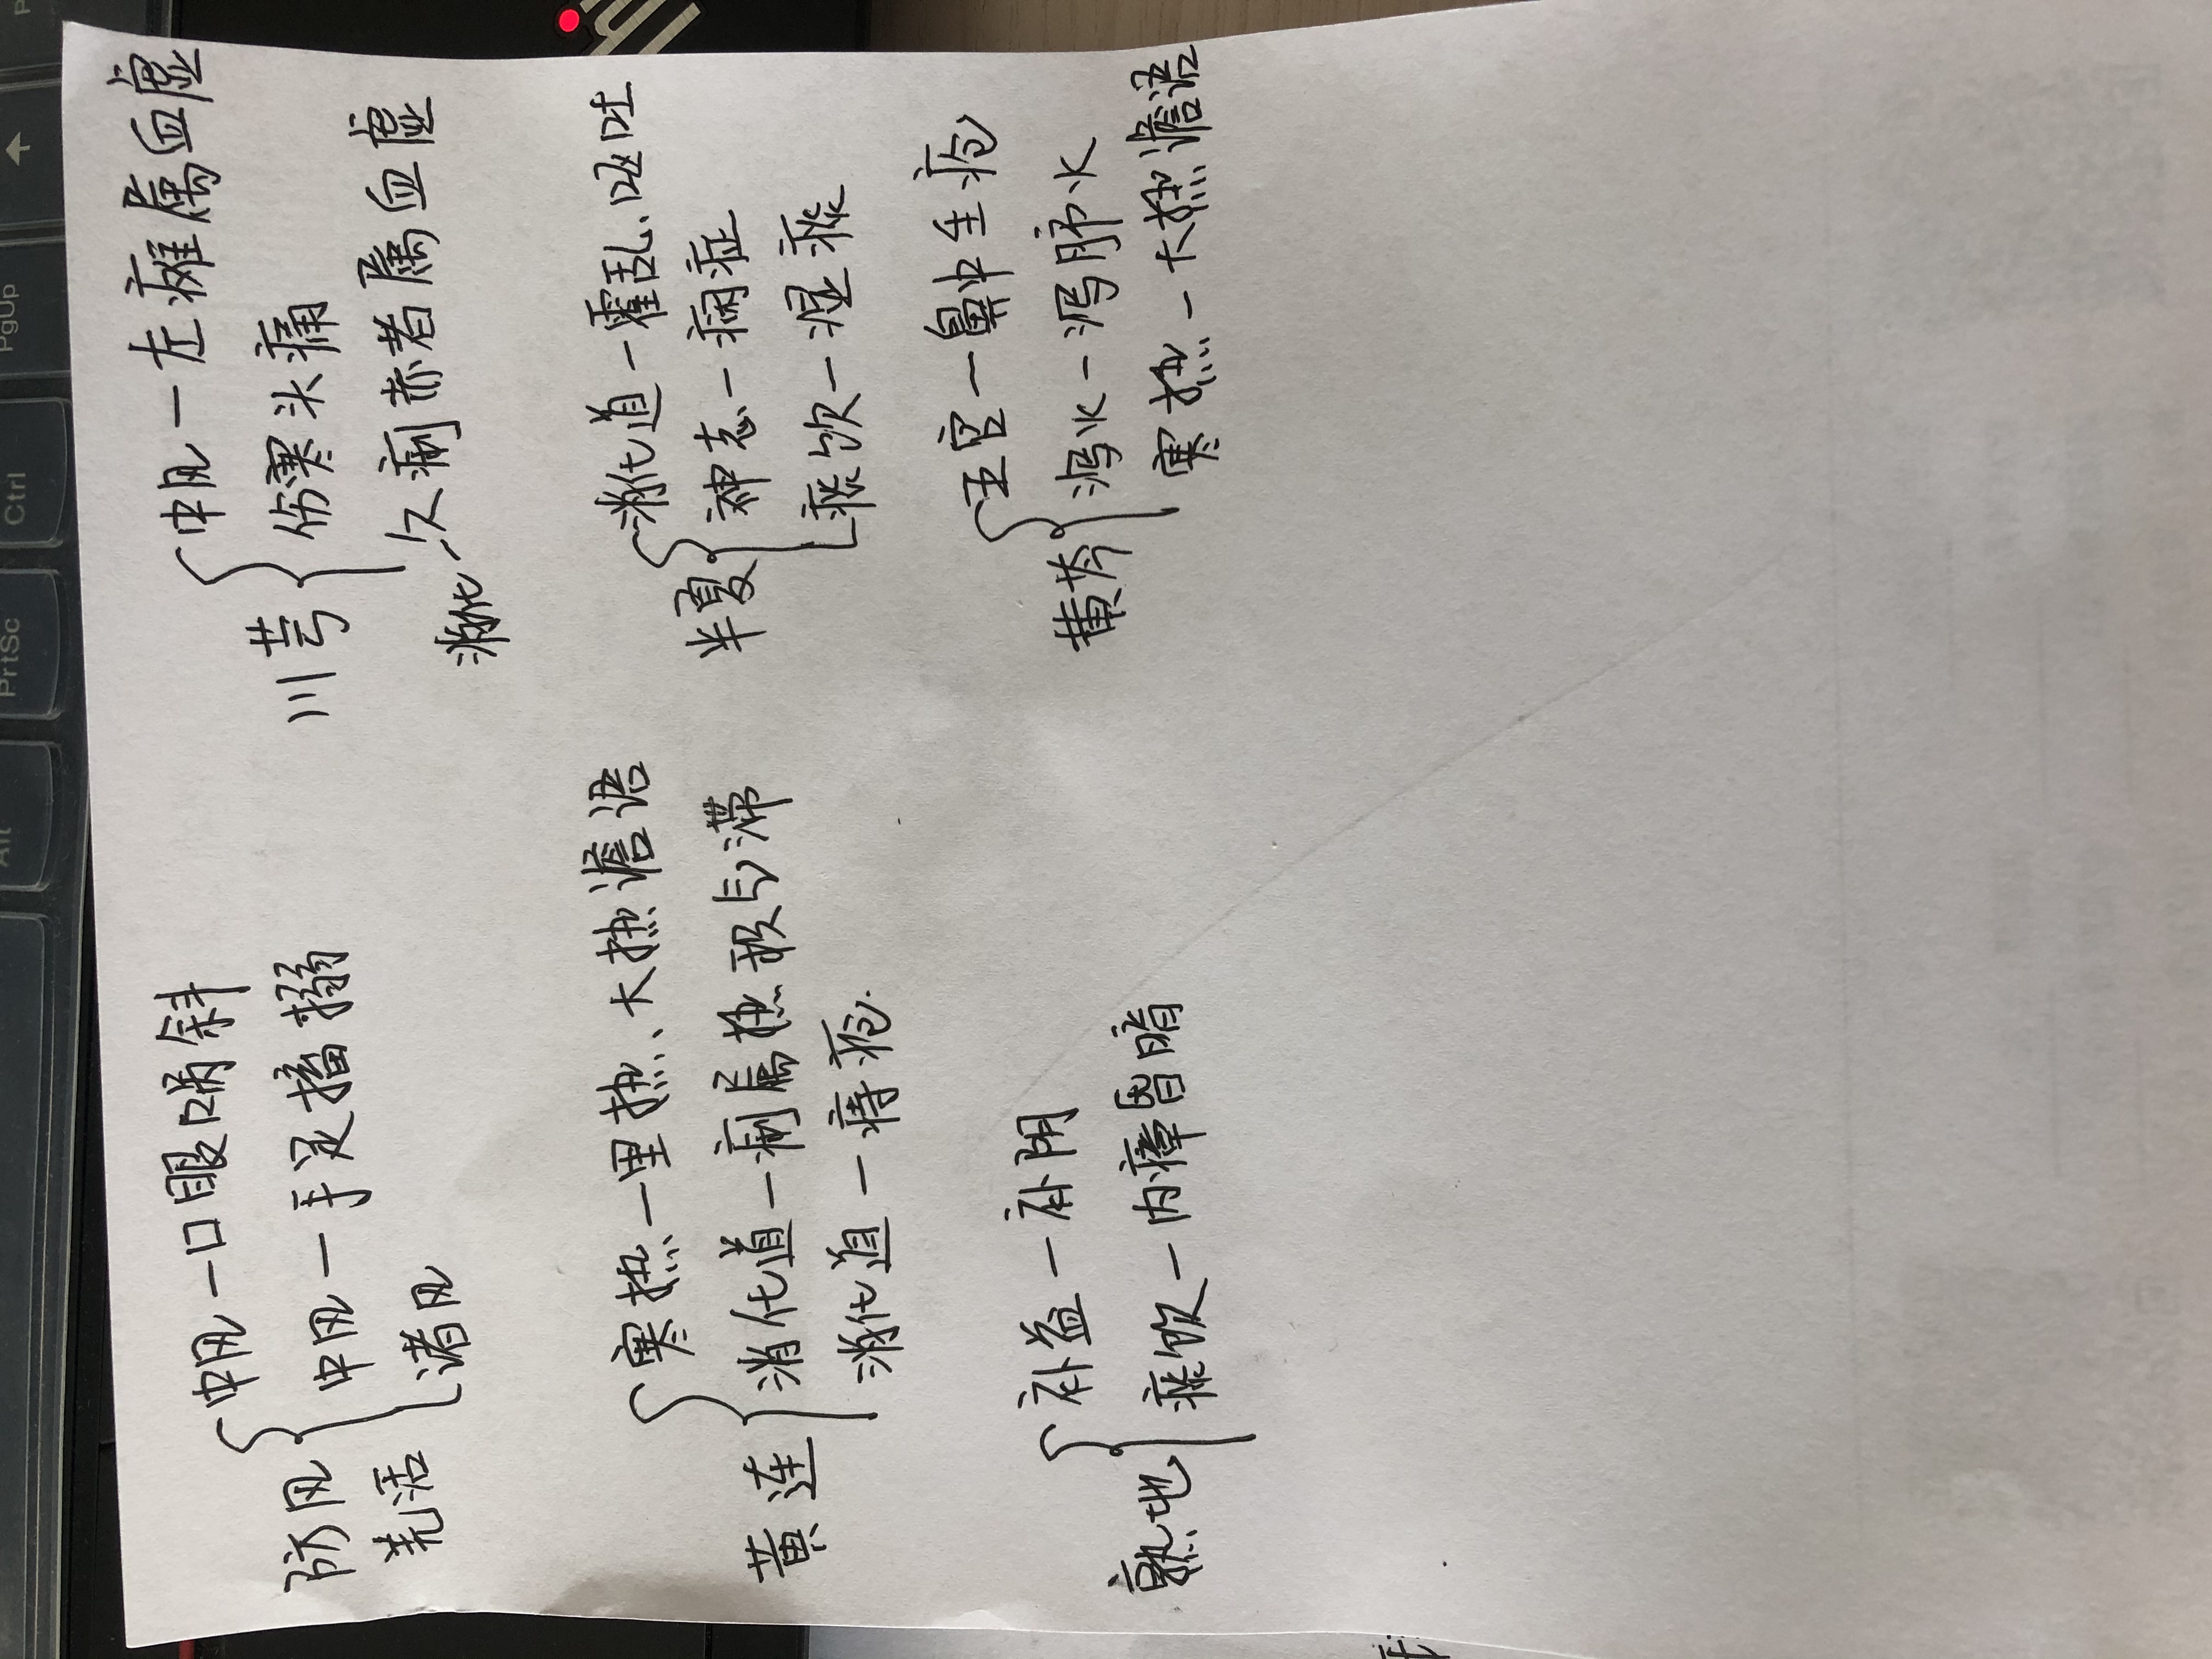 防风 羌活
中风—口眼㖞斜
中风—手足搐搦
诸风
川芎
中风—左瘫属血虚
伤寒头痛
久痢赤者属血虚
消化
黄连
寒热—里热、大热谵语
消化道—痢属热积气滞
消化道—痔疮.
半夏
消化道—霍乱、呕吐
神志—痫症
痰饮—湿痰
熟地
补益—补阴
痰饮—内瘴昏暗
黄芩
五官—鼻中生疮
泻火—泻肺火
寒热—大热谵语
PgUp
Ctrl
PrtSc
Alt